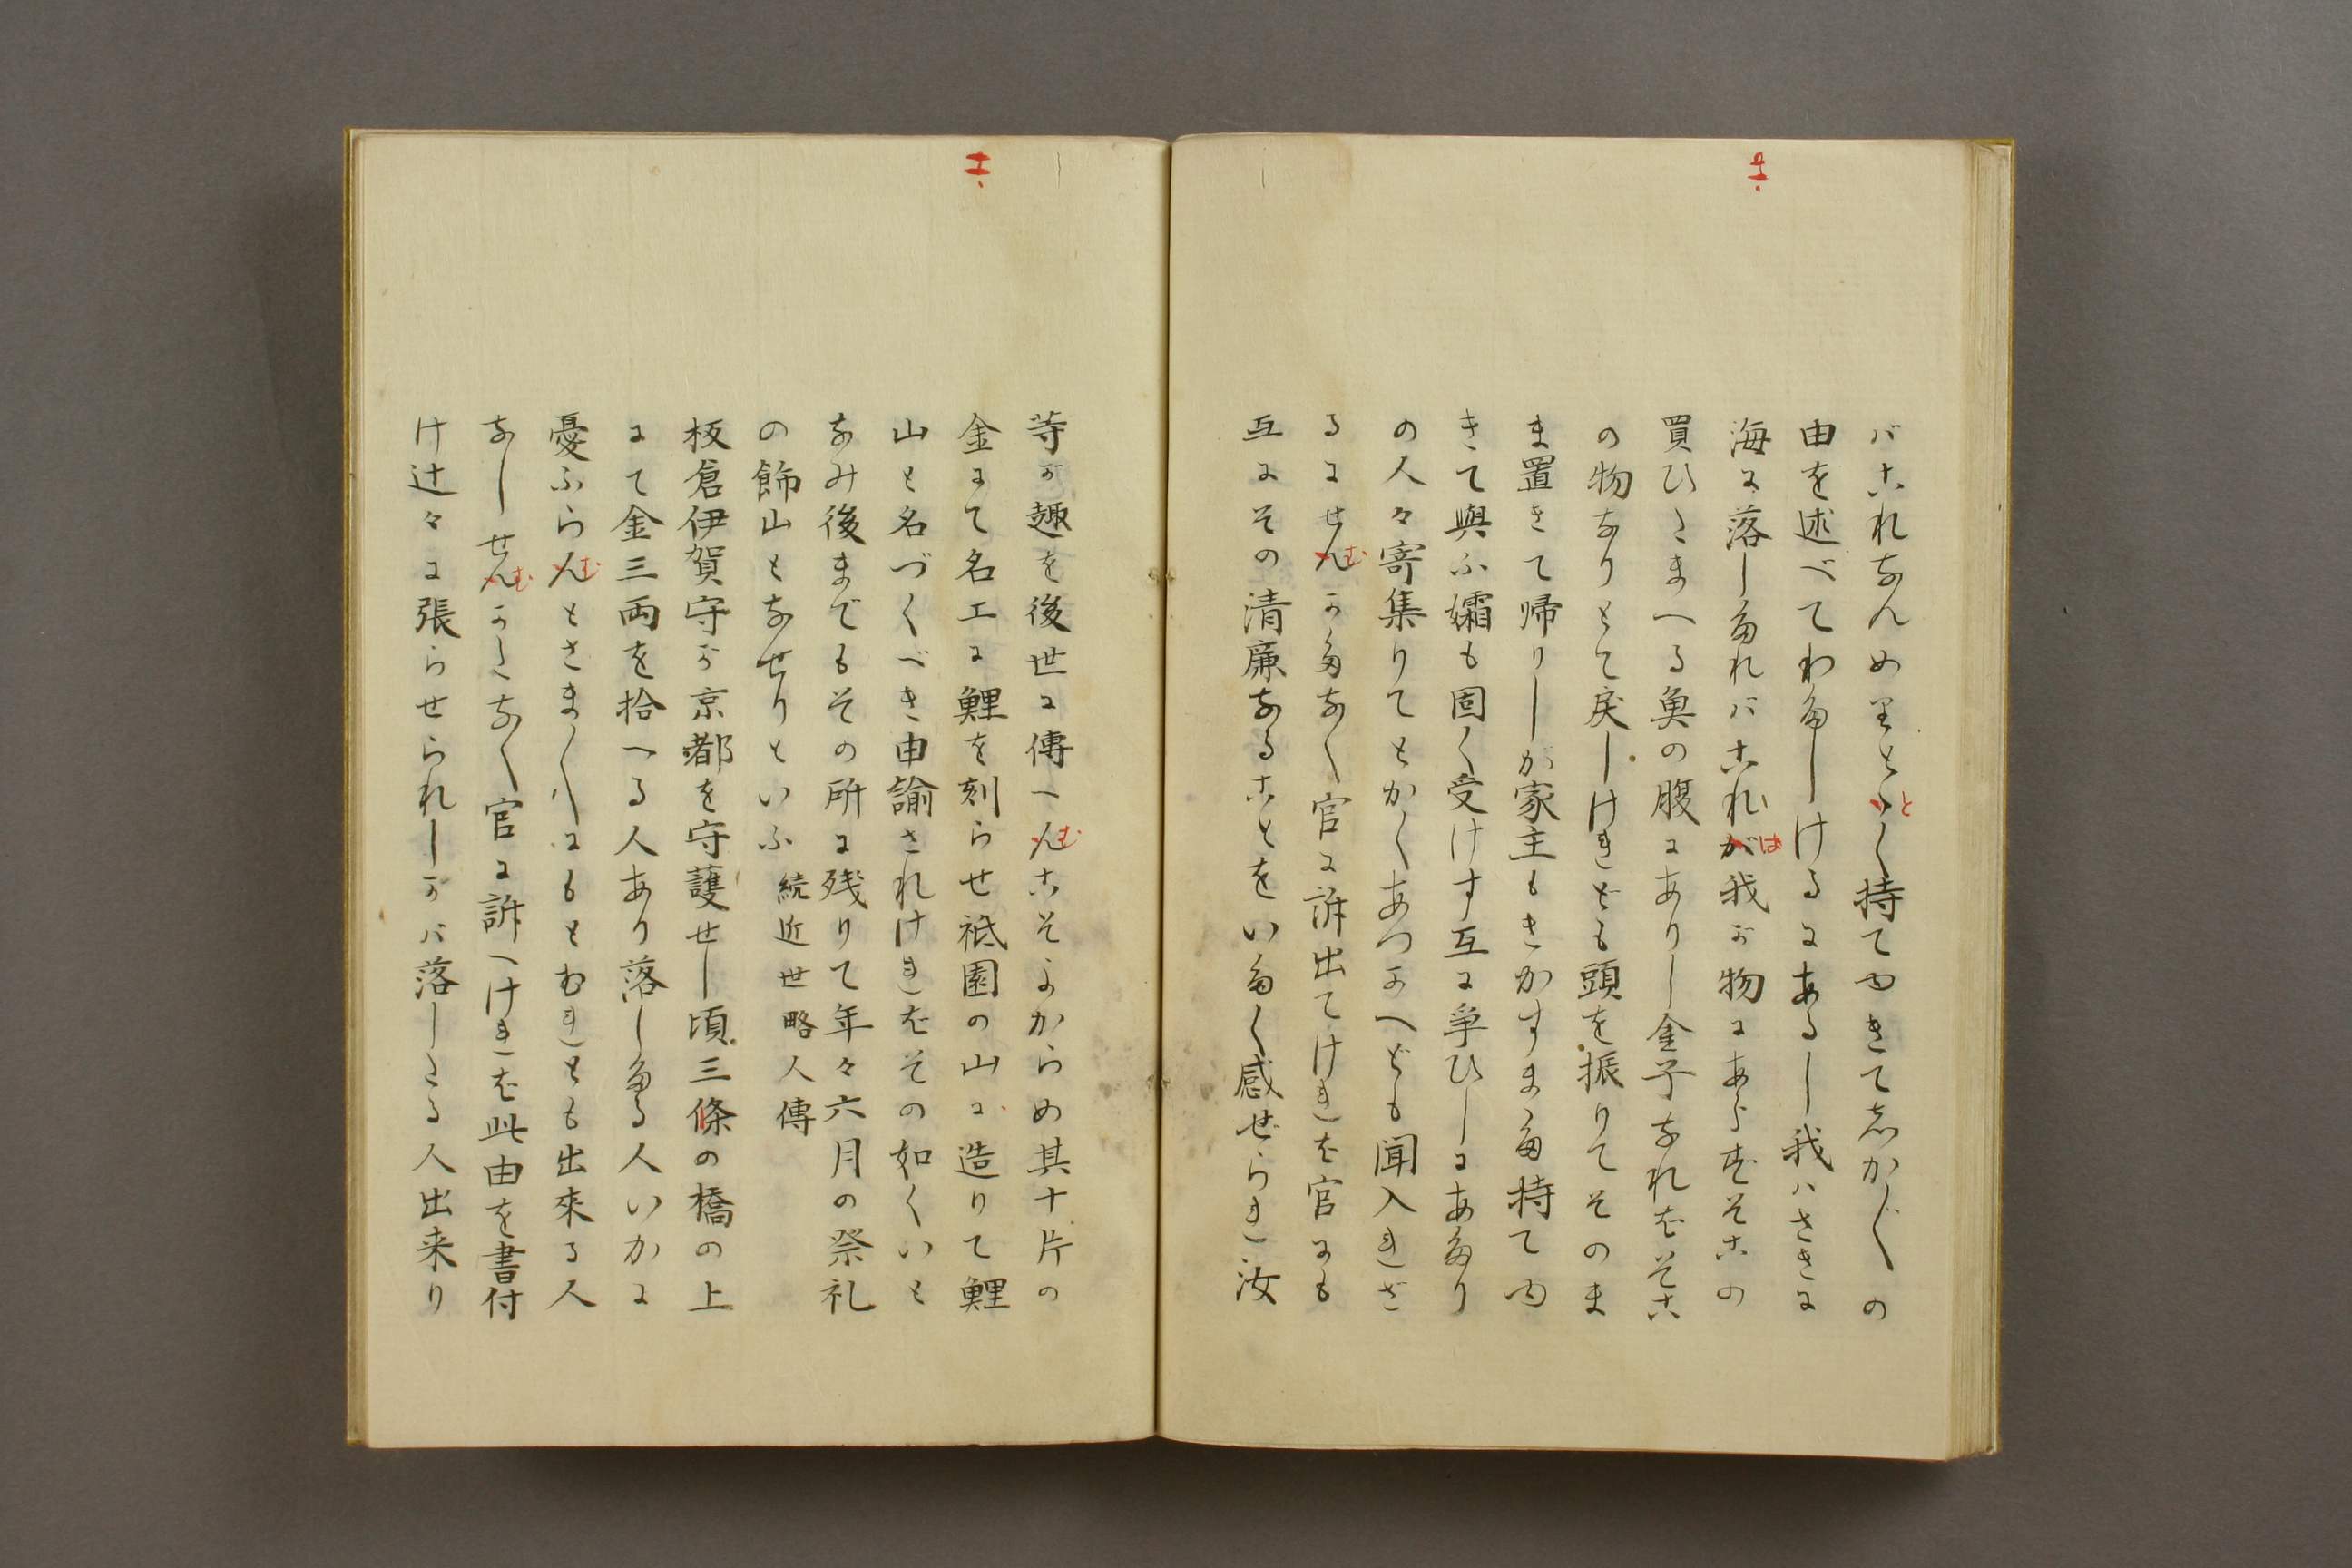 バこれなんめりとゝく持てゆきてしか〴〵の
由を述べてわたしけるにあるし我ハさきに
海に落したれバこれが我が物にあらずそこの
買ひたまへる魚の腹にありし金子なれをそこ
の物なりとて戻しけれども頭を振りてそのま
ま置きて帰りしが家主もきかすまた持てゆ
きて與ふ孀も固く受けす互に争ひしにあたり
の人々寄集りてとかくあつかへども聞入れざ
るにせんかたなく官に訴出てけれを官にも
互にその清廉なることをいたく感ぜられ汝
等が趣を後世に傳へんこそよからめ其十片の
金にて名工に鯉を刻らせ祇園の山に造りて鯉
山と名づくべき由諭されけれをその如くいと
なみ後までもその所に残りて年々六月の祭礼
の飾山となせりといふ 続近世略人傳
板倉伊賀守が京都を守護せし頃三條の橋の上
にて金三両を拾へる人あり落したる人いかに
憂ふらんとさま〴〵にもとむれとも出來る人
なしせんかたなく官に訴へけれを此由を書付
け辻々に張らせられしかバ落したる人出来り
と
は
む
む
む
む